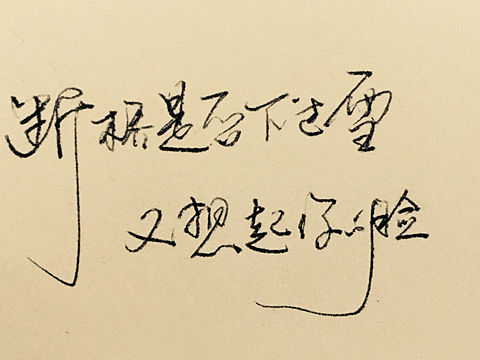 断桥是否下过雪
又想起你的脸